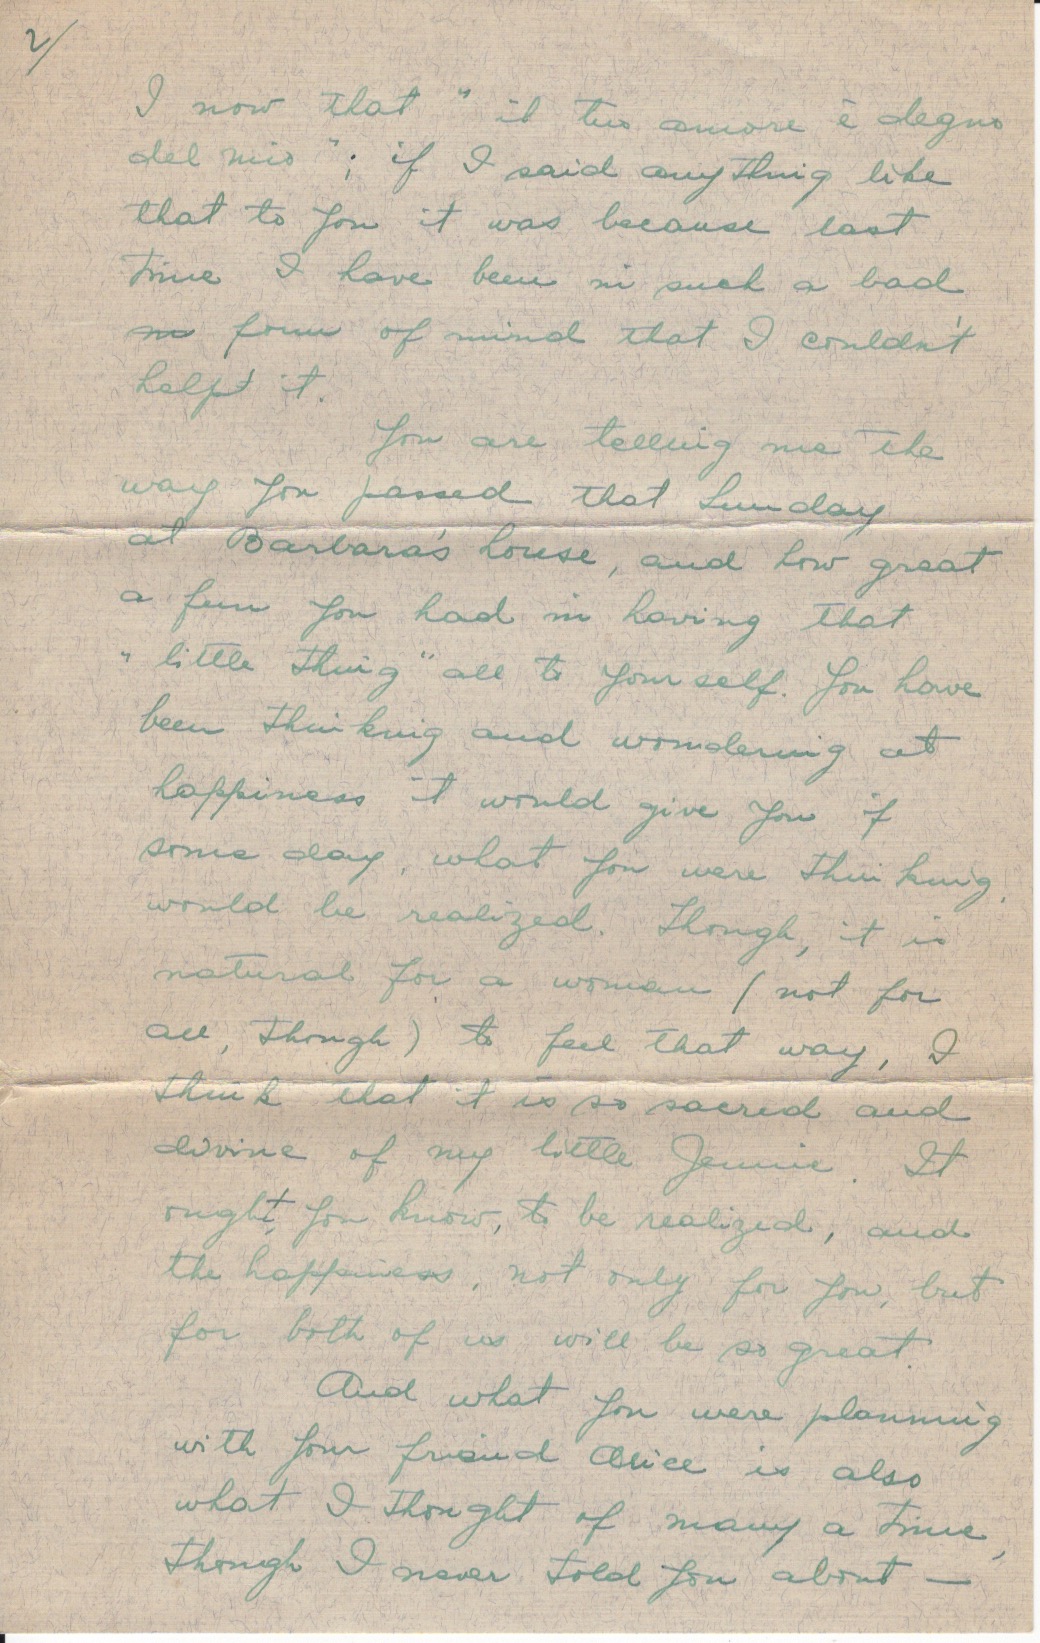 2/
I now that "il tuo amore è degno
del mio"; if I said anything like
that to you it was because last
time I have been in such a bad
form of mind that I couldn't
help't it.
You are telling me the
way you passed that Sunday
at Barbara's house, and how great
a fun you had in having that
"little thing" all to yourself. You have
been thinking and wondering at
happiness it would give you if
some day, what you were thinking,
would be realized. Though, it is
natural for a woman (not for
all, though) to feel that way, I
think that it is so sacred and
divine of my little Jennie. It
ought, you know, to be realized, and
the happiness, not only for you, but
for both of us will be so great.
And what you were planning
with your friend Alice is also
what I thought of many a time,
though I never told you about —